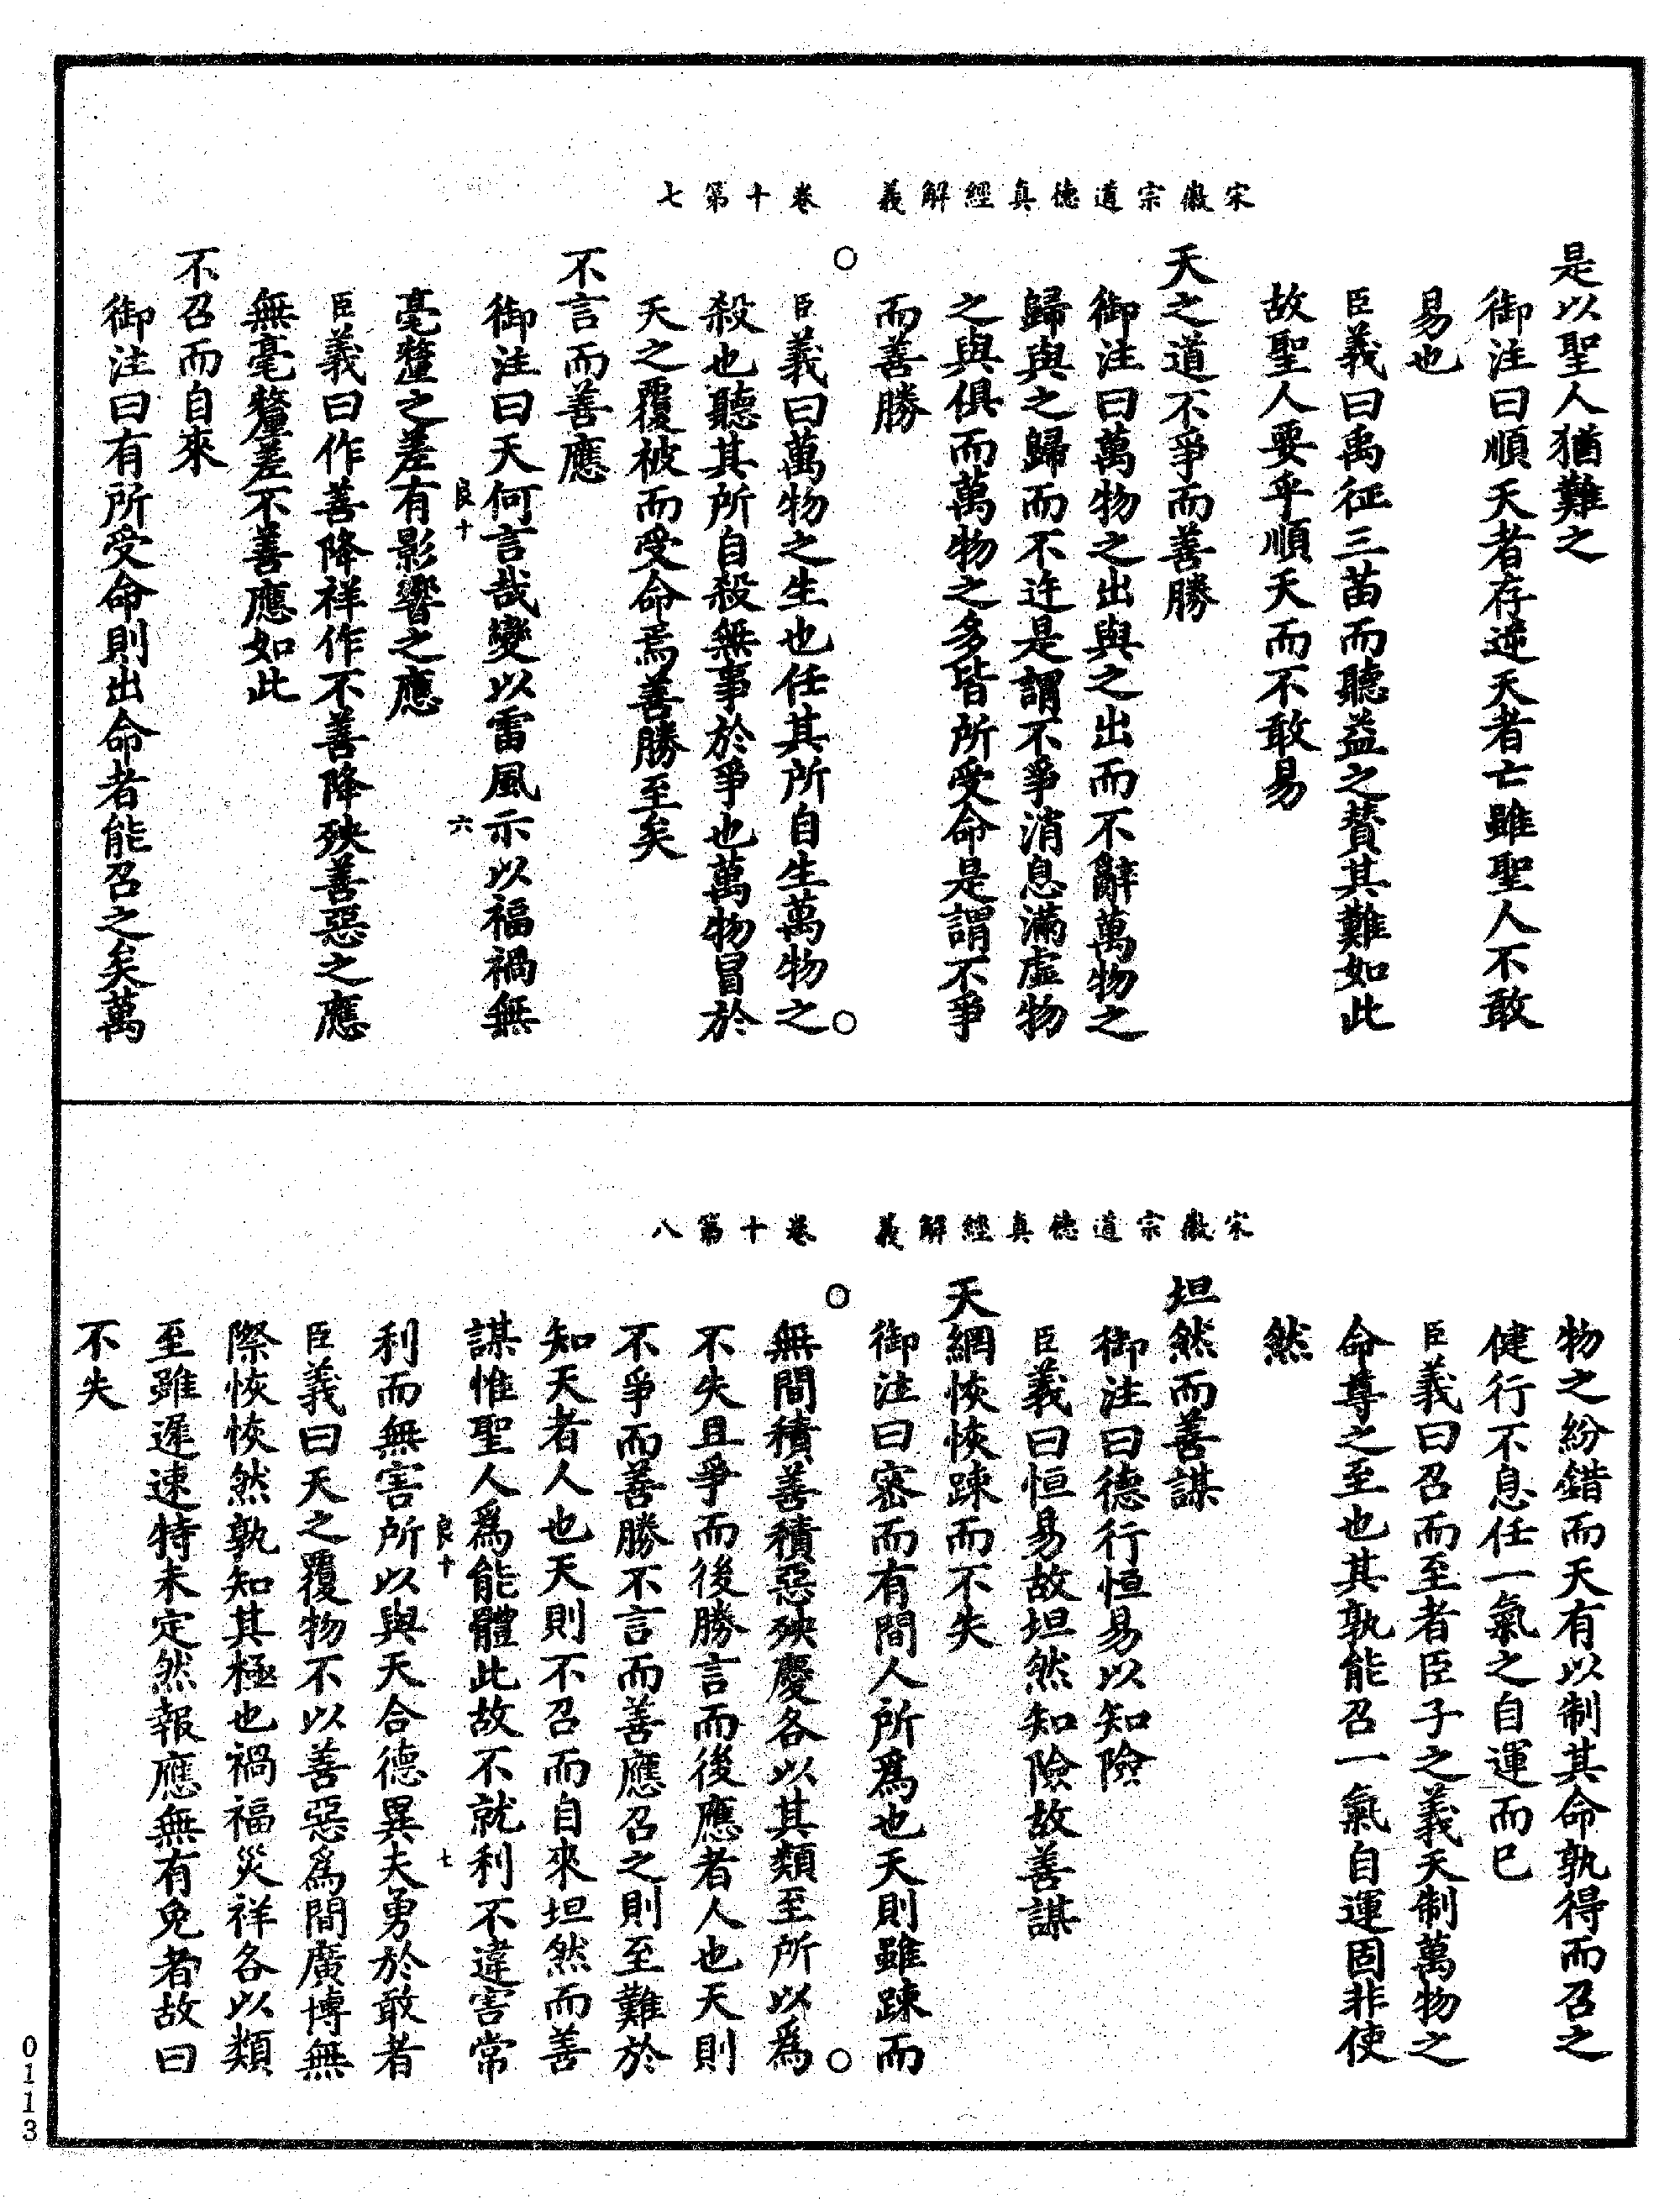 宋徽宗道德真經解義　卷十第七
是以聖人猶難之
御注曰順天者存逆天者亡雖聖人不敢
易也
臣義曰禹征三苗而聽益之贊其難如此
故聖人要乎順天而不敢易
天之道不爭而善勝
御注曰萬物之出與之出而不辭萬物之
歸與之歸而不迕是謂不爭消息滿虛物
之與俱而萬物之多皆所受命是謂不爭
而善勝
臣義曰萬物之生也任其所自生萬物之
殺也聽其所自殺無事於爭也萬物冒於
天之覆被而受命焉善勝至矣
不言而善應
御注曰天何言哉變以雷風示以福禍無
良十　六
毫釐之差有影響之應
臣義曰作善降祥作不善降殃善惡之應
無毫釐差不善應如此
不召而自來
御注曰有所受命則出命者能召之矣萬
宋徽宗道德真經解義　卷十第八
物之紛錯而天有以制其命孰得而召之
健行不息任一氣之自運而已
臣義曰召而至者臣子之義天制萬物之
命尊之至也其孰能召一氣自運固非使
然
坦然而善謀
御注曰德行恒易以知險
臣義曰恒易故坦然知險故善謀
天網恢恢踈而不失
御注曰密而有間人所爲也天則雖踈而
無間積善積惡殃慶各以其類至所以爲
不失且爭而後勝言而後應者人也天則
不爭而善勝不言而善應召之則至難於
知天者人也天則不召而自來坦然而善
謀惟聖人爲能體此故不就利不違害常
良十　七
利而無害所以與天合德異夫勇於敢者
臣義曰天之覆物不以善惡爲間廣博無
際恢恢然孰知其極也禍福災祥各以類
至雖遲速特未定然報應無有免者故曰
不失
0113